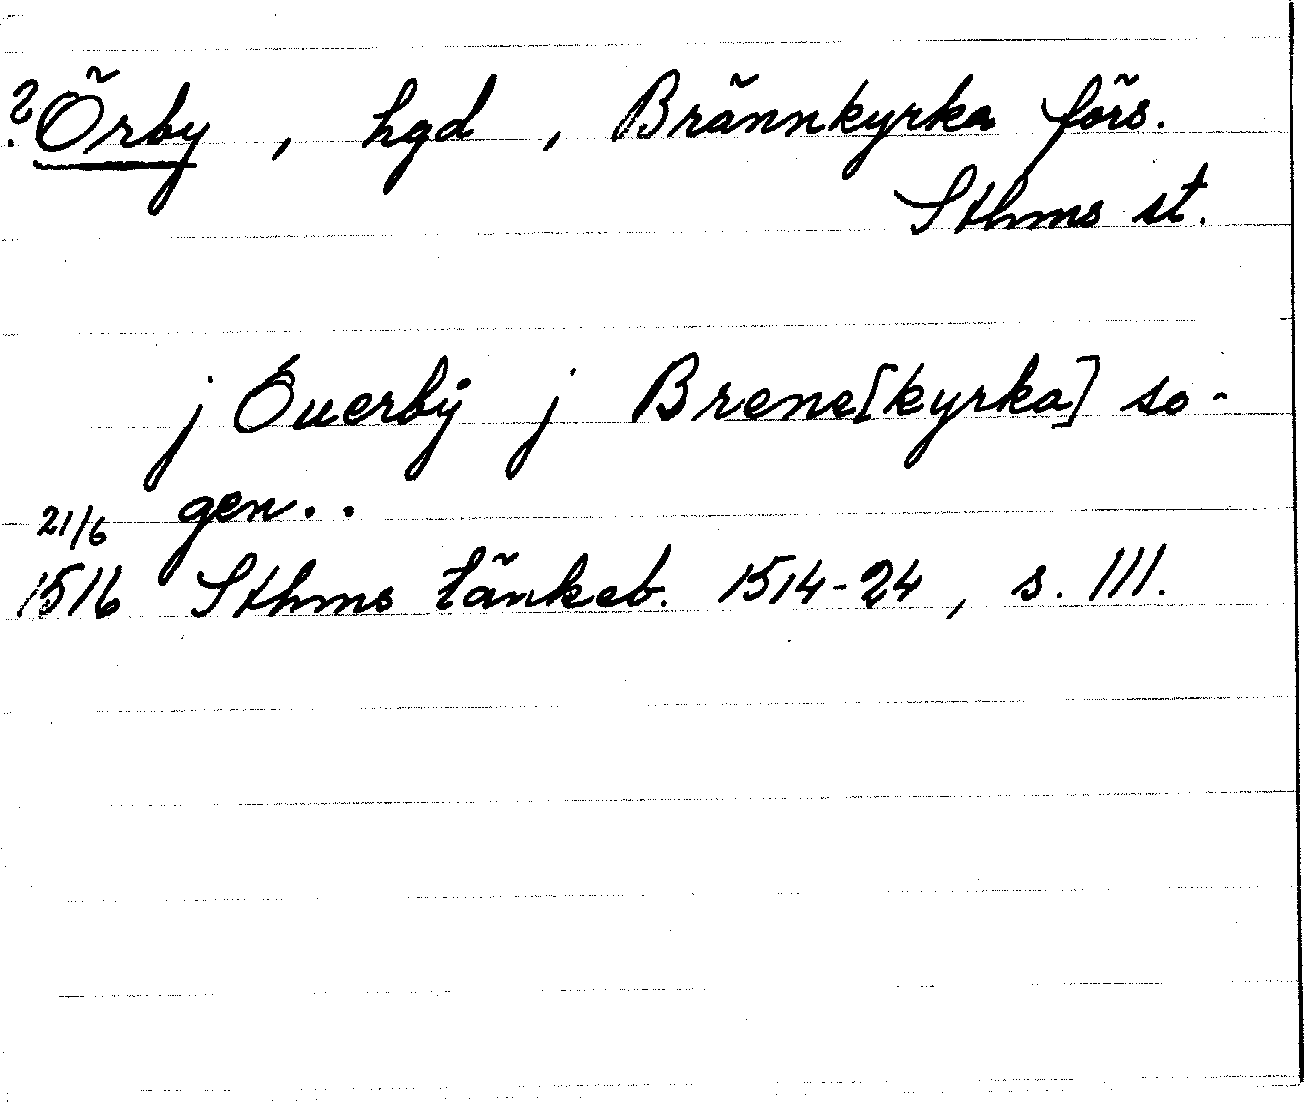 ? Örby, hgd, Brännkyrka förs.
Sthms st.
j Ouerbÿ j Brene[kyrka] so-
gen..
21/6
1516 Sthms tänkeb. 1514-24, s. 111.